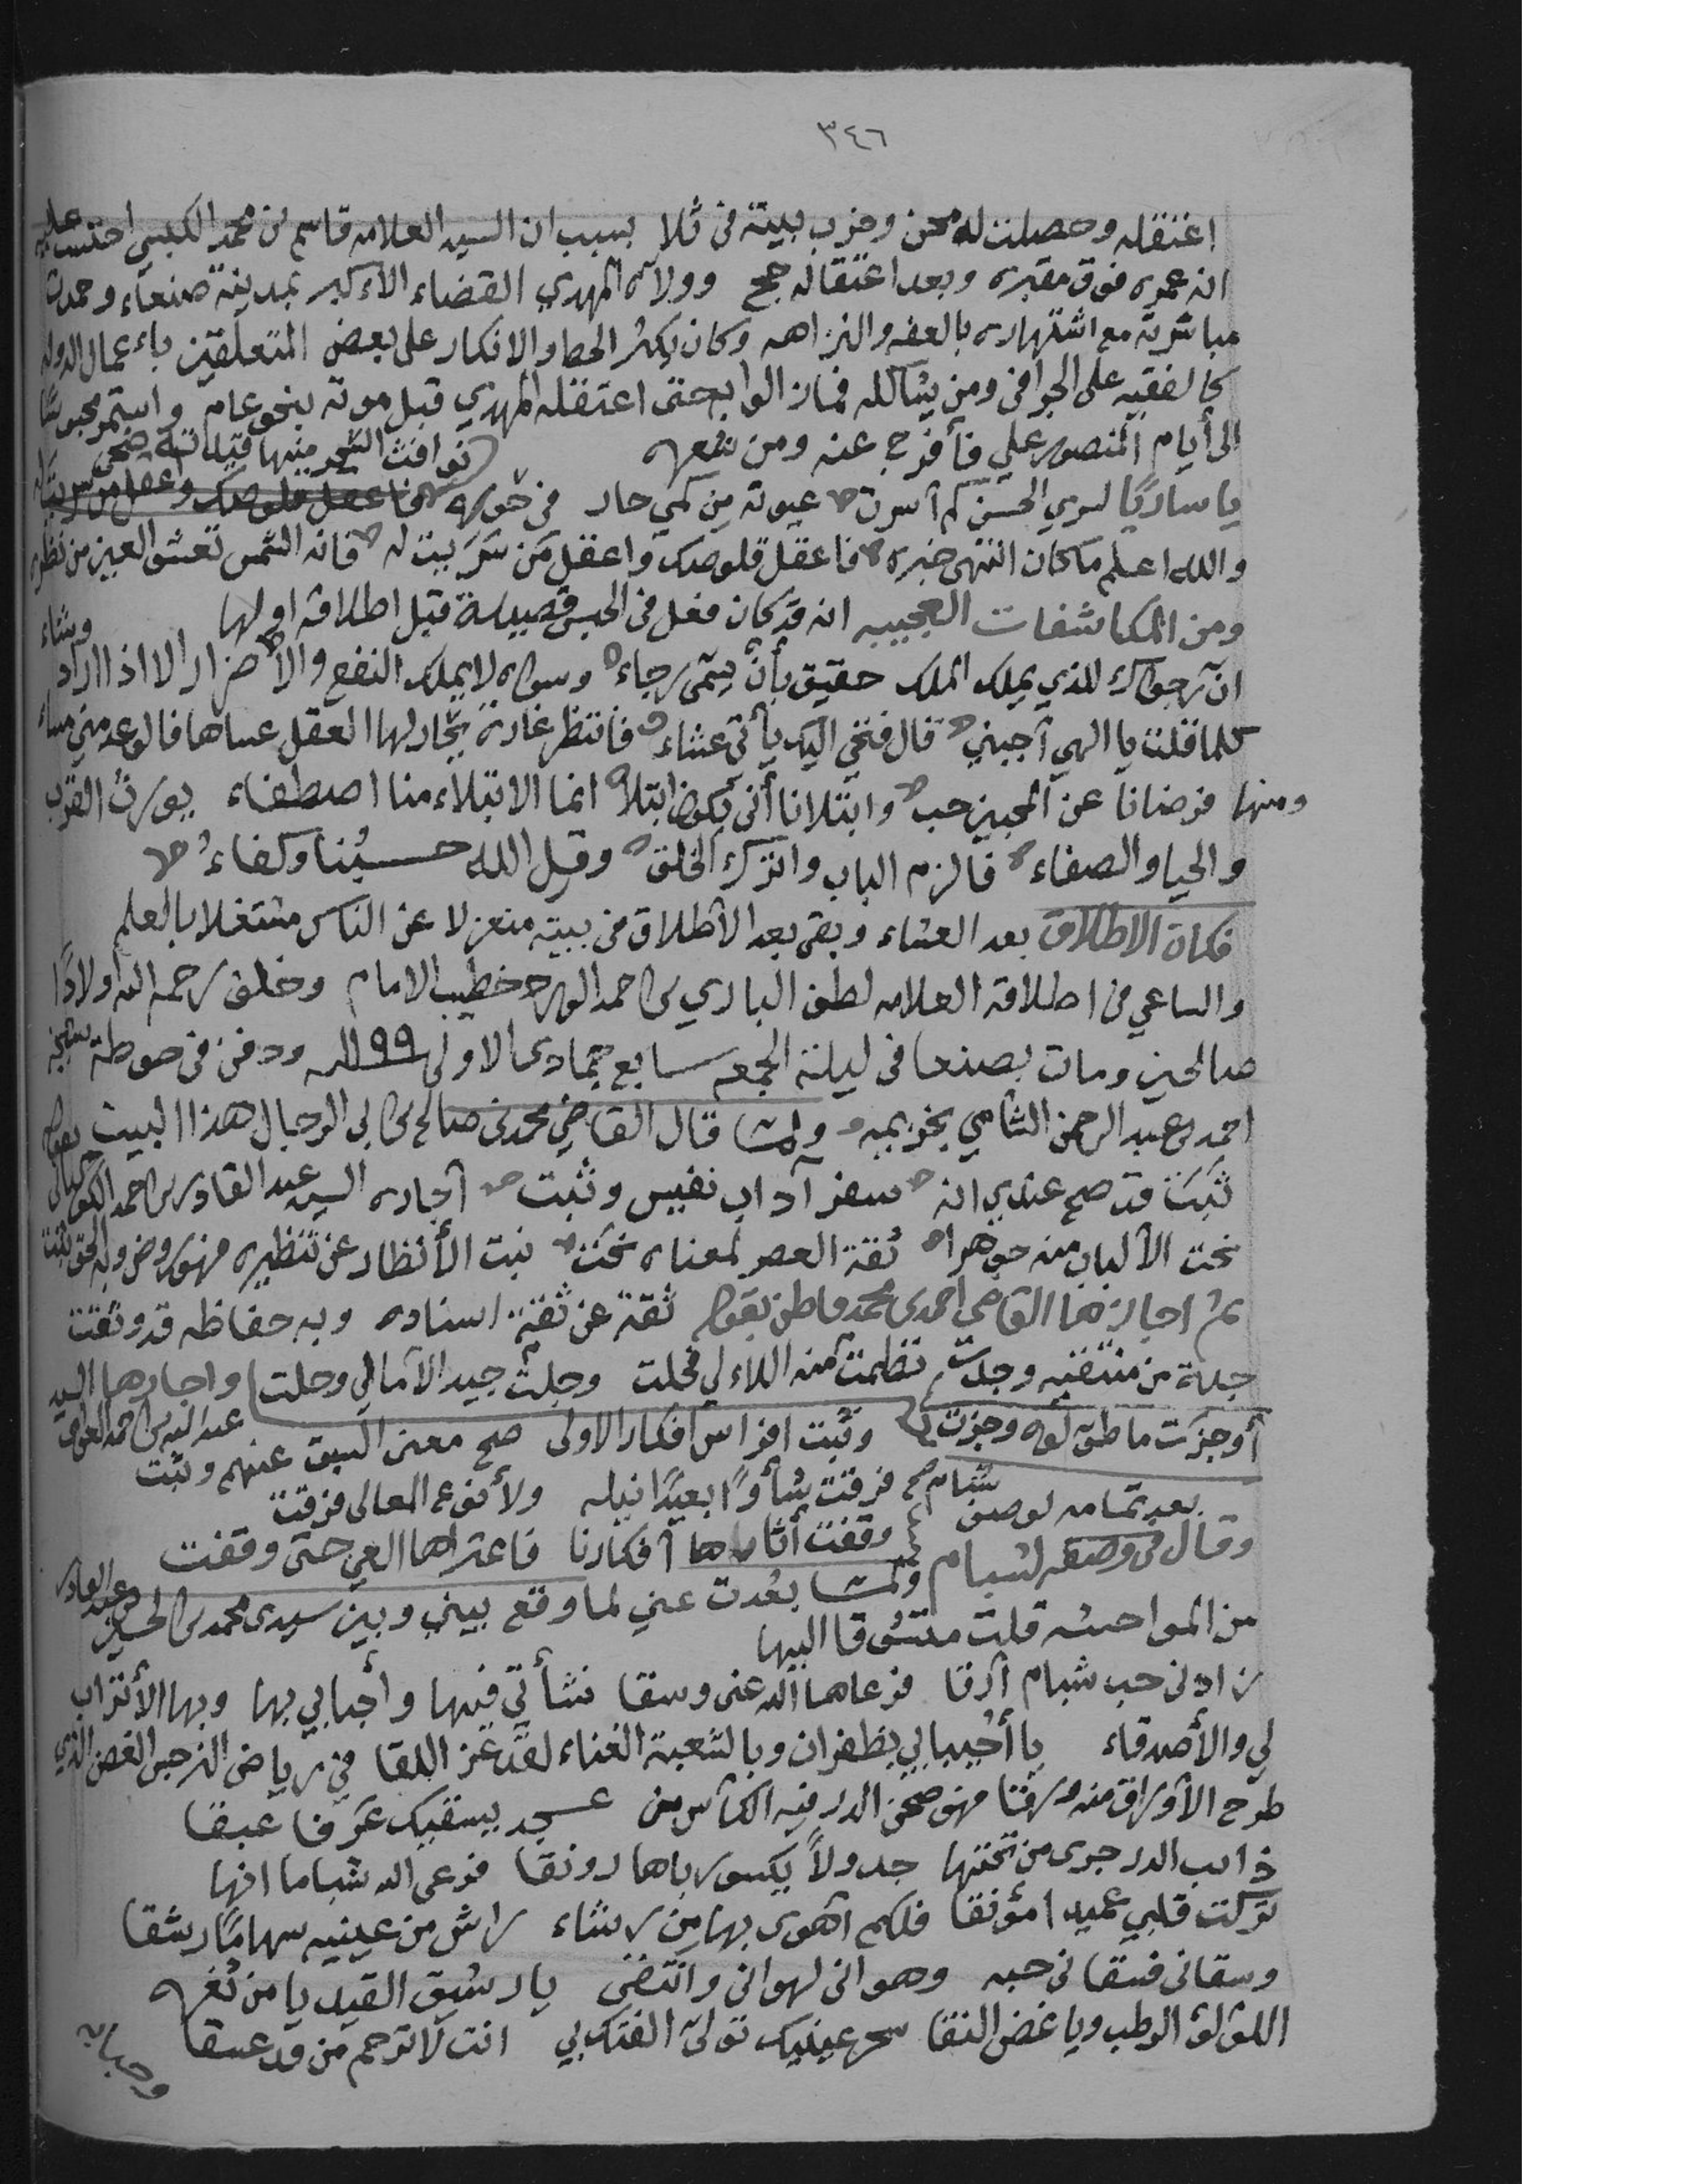 ٣٤٦
اعتقله وحصلت له محن وخرب بيته في ثلا بسبب ان السيد العلامه قاسم بن محمد الكبسي احتسب عليه
انه عمره فوق مقبره وبعد اعتقاله حج وولاه المهدي القضاء الاكبر بمدينة صنعاء وحمدت
مباشرته مع اشتهاره بالعفه والنزاهه وكان يكثر الحط والانكار على بعض المتعلقين باعمال الدوله
كالفقيه على الجرافي ومن يشاكله فمازالوا به حتى اعتقله المهدي قبل موته بنحو عام واستمر محبوسًا
الى أيام المنصور علي فأفرج عنه ومن شعره
يا ساريًا لسري الحسن كم أسرت عيونه من كمي حار في حوره
والله اعلم ما كان انتهى خبره فاعقل قلوصك واعقل من سريت له فانه الشمس تعشو العين من نظره
ومن المكاشفات العجيبه انه قد كان فعل في الحبس قصيدة قبل اطلاقه اولها
ان ترجواك للذي يملك الملك حقيق بأن يسمى رجاء وسواه لا يملك النفع والاضرار الا اذا اراد وشاء
كلما قلت يا الهي أجبني قال فتحي اليك يأتي عشاء فانتظر غارة يحار لها العقل عساها فالوعد مني مساء
ومنها فرضانا عن المحبين حب وابتلانا أنى يكون ابتلا انما الابتلاء منا اصطفاء يورث القرب
والحيا والصفاء فالزم الباب واترك الخلق وقل الله حسبُنا وكفاءُ
فكان الاطلاق بعد العشاء وبقي بعد الاطلاق في بيته منعزلا عن الناس مشتغلا بالعلم
والساعي في اطلاقه العلامه لطف الباري بن احمد الورد خطيب الامام وخلف رحمه الله اولادًا
صالحين ومات بصنعا في ليلة الجمعه سابع جمادى الاولى ١١٩٩ ودفن في حوطة شيخه
احمد بن عبد الرحمن الشامي بخزيمه ولما قال القاضي محمد بن صالح بن ابي الرجال هذا البيت
ثبت قد صح عندي انه سفر آداب نفيس وثبت أجازه السيد عبد القادر بن احمد الكوكباني
نحت الالباب منه جوهرا ثقة العصر لمعناه نحت نبت الأنظار عن تنظيره فهو روض وله الحق
ثم اجازهما القاضي احمد بن محمد قاطن بقوله ثقة عن ثقة اسناده وبه حفاظه قد وثقت
جملة من منتقيه وجدت نظمت منه اللاءلي فحلت وجلت جيد الآمالي وحلت واجازها السيد
أوجزت ما طق لفه وجزت وثبت افراس افكار الاولى صح معنى السبق عنهم وثبت
بعد تمامه لوصف شبام صح فرقت شأوًا بعيدًا نيله ولأنفع المعالى فرقت
وقال في وصف لشبام وقفت أثارها أفكارنا فاعتراها العي حتى وقفت
ولما بعُدت عني لما وقع بيني وبين سيدى محمد بن الحسين بن عبد القادر
من المواحشه قلت متشوقا اليها
زادني حب شبام أرقا فرعاها الله عنى وسقا نشأتي فيها وأحبابي بها وبها الأتراب
لي والأصدقاء يا أحيبابي بظفران وبالشعبة الغناء لقد عز اللقا في رياض النرجس الغض الذي
طرح الأوراق منه ورقا فهو صحن الدر فيه الكأس من عسجد يسقيك عَرفا عبقا
ذائب الدر جرى من تحتها جدولاً يكسو رباها رونقا فرعى الله شباما انها
تركت قلبي عميدا مؤنقا فلكم أهوى بها من رشاء راش من عينيه سهامًا رشقا
وسقاني فسقاني حبه وهواني لهواني وانتضى يا رشيق القد يا من ثغره
اللؤلؤ الرطب ويا غض النقا سحر عينيك تولى الفتك بي انت لا ترحم من قد عشقا